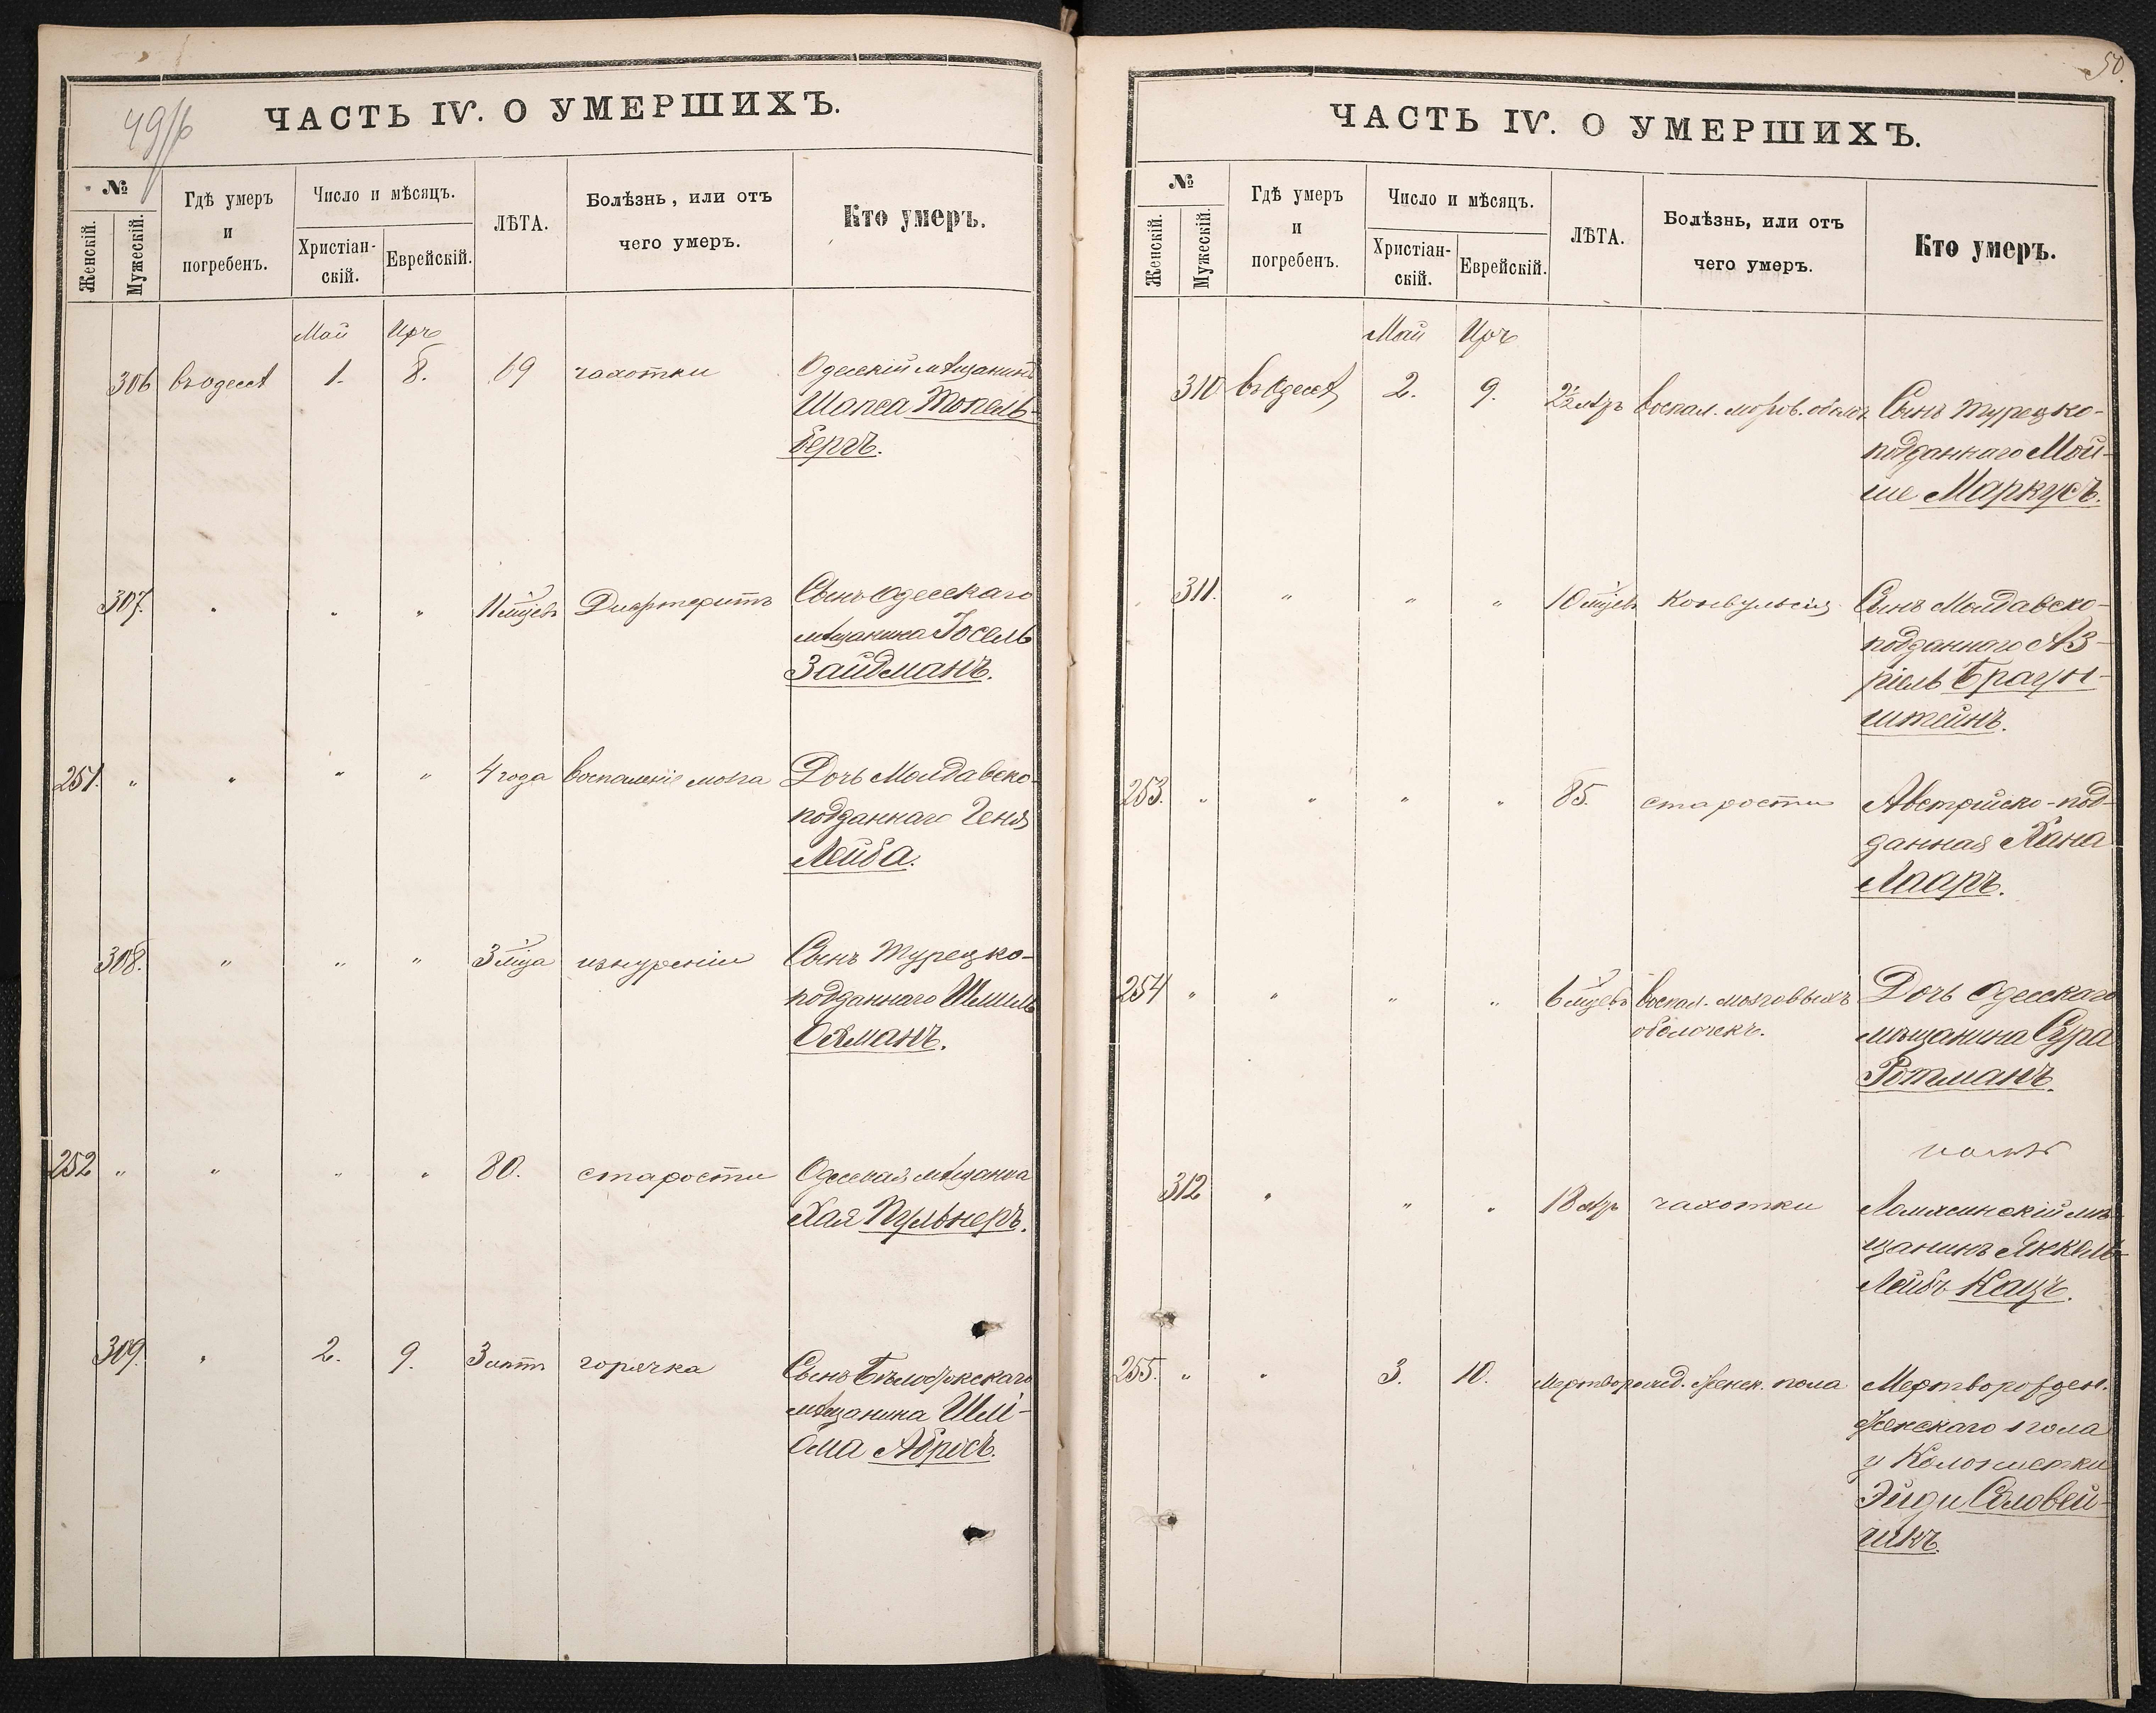 49/б
ЧАСТЬ IV. О УМЕРШИХЪ.
№
Женскій.
Мужескій.
Гдѣ умеръ
и
погребенъ.
Число и мѣсяцъ.
Христіан-
скій.
Еврейскій.
ЛѢТА.
Болѣзнь, или отъ
чего умеръ.
Кто умеръ.
Май Иръ
306 въ Одессѣ 1. 8. 69 чахотки Одесскій мѣщанинъ
Шапса Топель-
бергъ.
307. " " " 11 м-цевъ Дифтеритъ Сынъ Одесскаго
мѣщанина Іосель
Зайдманъ.
251. " " " " 4 года воспаленіе мозга Дочь Молдавско-
подданнаго Геня
Лейба.
308. " " " 3 м-ца изнуреніи Сынъ Турецко-
подданнаго Шмиль
252 " " " " 80. старости Одесская мѣщанка
Хая Пульнеръ.
309. " 2. 9. 3 лѣтъ горячка Сынъ
мѣщанина Шлі-
ома Абрось.
50.
ЧАСТЬ IV. О УМЕРШИХЪ.
№
Женскій.
Мужескій.
Гдѣ умеръ
и
погребенъ.
Число и мѣсяцъ.
Христіан-
скій.
Еврейскій.
ЛѢТА.
Болѣзнь, или отъ
чего умеръ.
Кто умеръ.
Май Иръ
310 въ Одессѣ 2. 9. 2½ лѣтъ воспал. Сынъ Турецко-
подданнаго Мой-
ше Маркусъ.
311. " " " 10 м-цевъ конвульсія Сынъ Молдавско-
подданнаго Аз-
ріель Браун-
штейнъ.
253. " " " " 85. старости Австрійско-под-
данная Хана
Лааръ.
254 " " " " 6 м-цевъ воспал. мозговыхъ Дочь Одесскаго
оболочекъ. мѣщанина Сура
Ротманъ.
312 " " " 18 лѣтъ чахотки мѣ-
щанинъ Янкель
Лейбъ Кацъ.
255. " " 3. 10. Мертворожд. женск. пола Мертворожден.
Женскаго пола
у Колонистки
Эйди Соловей-
чикъ.